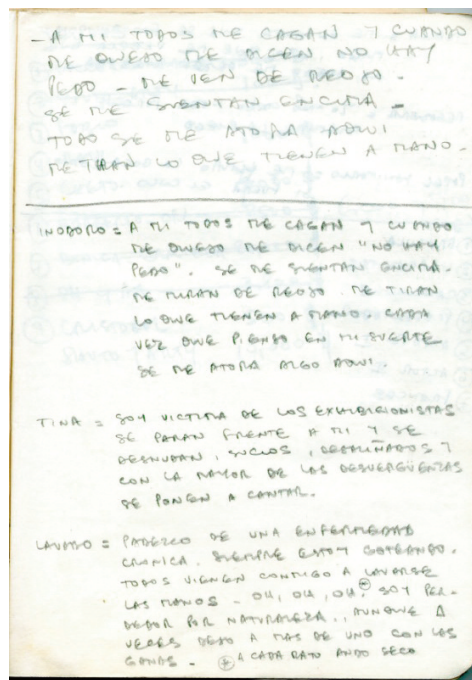 - A MI TODOS ME CAGAN Y CUANDO
ME QUEJO ME DICEN NO HAY
PEDO - ME VEN DE REOJO -
SE ME SIENTAN ENCIMA -
TODO SE ME ATORA AQUI
ME TIRAN LO QUE TIENEN A MANO -
INODORO = A MI TODOS ME CAGAN Y CUANDO
ME QUEJO ME DICEN "NO HAY
PEDO". SE ME SIENTAN ENCIMA.
ME MIRAN DE REOJO. ME TIRAN
LO QUE TIENEN A MANO. CADA
VEZ QUE PIENSO EN MI SUERTE
SE ME ATORA ALGO AQUI.
TINA = SOY VICTIMA DE LOS EXHIBICIONISTAS
SE PARAN FRENTE A MI Y SE
DESNUDAN, SUCIOS, DESALIÑADOS Y
CON LA MAYOR DE LAS DESVERGÜENZAS
SE PONEN A CANTAR.
LAVABO = PADEZCO DE UNA ENFERMEDAD
CRONICA. SIEMPRE ESTOY GOTEANDO.
TODOS VIENEN CONMIGO A LAVARSE
LAS MANOS - OH, OH, OH. SOY PER-
DEDOR POR NATURALEZA., AUNQUE A
VECES DEJO A MAS DE UNO CON LAS
GANAS - A CADA RATO ANDO SECO